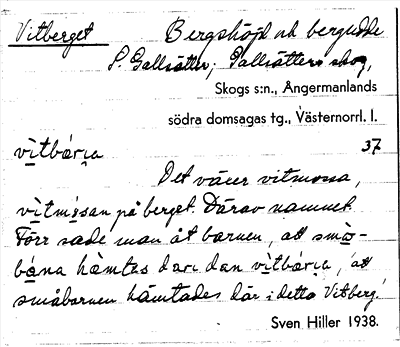 Vitberget Bergshöjd och bergudde
S. Gallsätter; Gallsätters skog,
Skogs s:n., Ångermanlands
södra domsagas tg., Västernorrl. l.
37
vìtbárɩa
Det växer vitmossa,
vìtmósan på berget. Därav namnet.
Förr sade man åt barnen, att smò-
bána hàmtas dar i dan vìtbárɩa, att
småbarnen hämtades där i detta Vitberg!
Sven Hiller 1938.